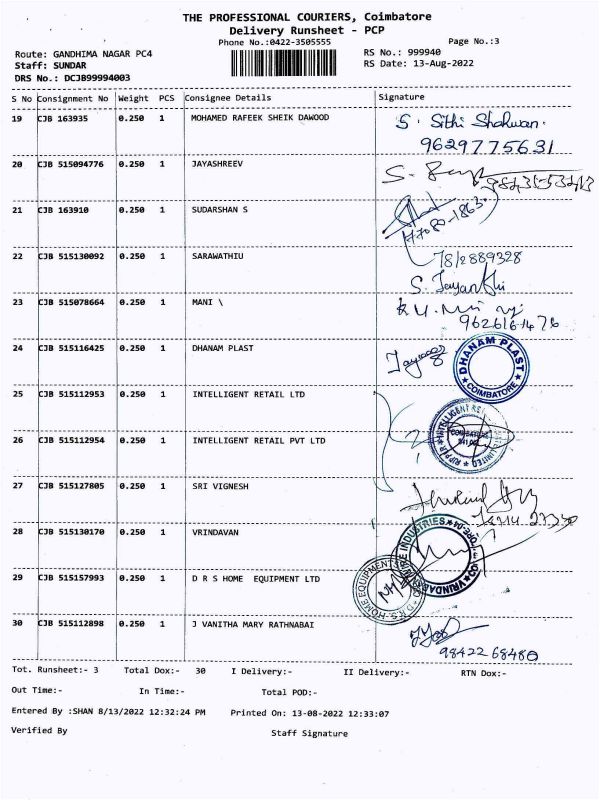 THE PROFESSIONAL COURIERS, Coimbatore
Delivery Runsheet - PCP
Phone No.:0422-3505555
Page No.:3
Route: GANDHIMA NAGAR PC4
RS No.: 999940
Staff: SUNDAR
RS Date: 13-Aug-2022
DRS No.: DCJB99994003
S No Consignment No Weight PCS Consignee Details Signature
19 CJB 163935 0.250 1 MOHAMED RAFEEK SHEIK DAWOOD S. Sithi Shahwan.
9629775631
20 CJB 515094776 0.250 1 JAYASHREEV S.
21 CJB 163910 0.250 1 SUDARSHAN S
77080-18630
22 CJB 515130092 0.250 1 SARAWATHIU 7812889328
S. Jayanthi
23 CJB 515078664 0.250 1 MANI \
9626161476
24 CJB 515116425 0.250 1 DHANAM PLAST DHANAM PLAST
COIMBATORE
25 CJB 515112953 0.250 1 INTELLIGENT RETAIL LTD
26 CJB 515112954 0.250 1 INTELLIGENT RETAIL PVT LTD
27 CJB 515127805 0.250 1 SRI VIGNESH
28 CJB 515130170 0.250 1 VRINDAVAN
29 CJB 515157993 0.250 1 D R S HOME EQUIPMENT LTD
30 CJB 515112898 0.250 1 J VANITHA MARY RATHNABAI
98422 68480
Tot. Runsheet:- 3 Total Dox:- 30 I Delivery:- II Delivery:- RTN Dox:-
Out Time:- In Time:- Total POD:-
Entered By :SHAN 8/13/2022 12:32:24 PM Printed On: 13-08-2022 12:33:07
Verified By Staff Signature